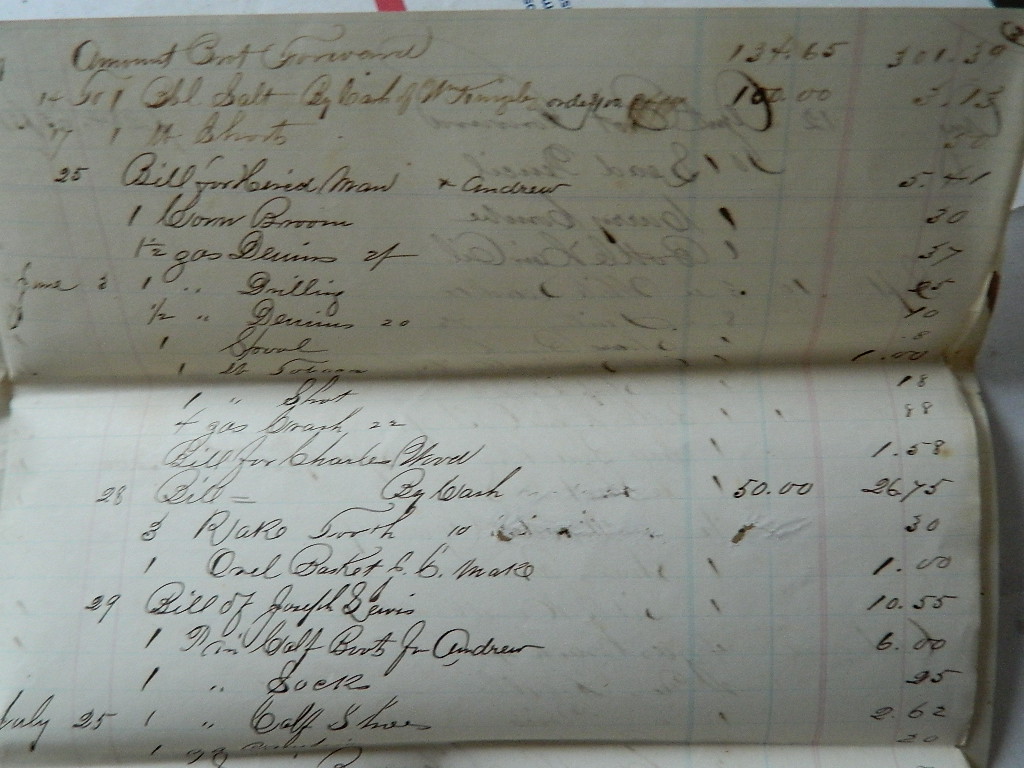 Amount Brot Forward 134.65 301.30
14 To 1 Bbl Salt By Cash of Wm 100.00 3.13
17 1 lb Shorts 30
25 Bill for Hired Man & Andrew 5.41
1 Corn Broom 30
1 1/2 yds Denims 2/ 37
June 3 1 " Drilling
1/2 " Denims 20 10
1 Spool 8
1 lb Tobacco 1.00
1 " Shot 18
4 yds Crash 22 88
Bill for Charles Wood 1.58
28 Bill = By Cash 50.00 26.75
3 Rake Tooth 10 30
1 Basket 1.00
29 Bill of Joseph Lewis 10.55
1 Pair Calf Boots for Andrew 6.00
1 " Socks 25
July 25 1 " Calf Shoes 2.62
1 20